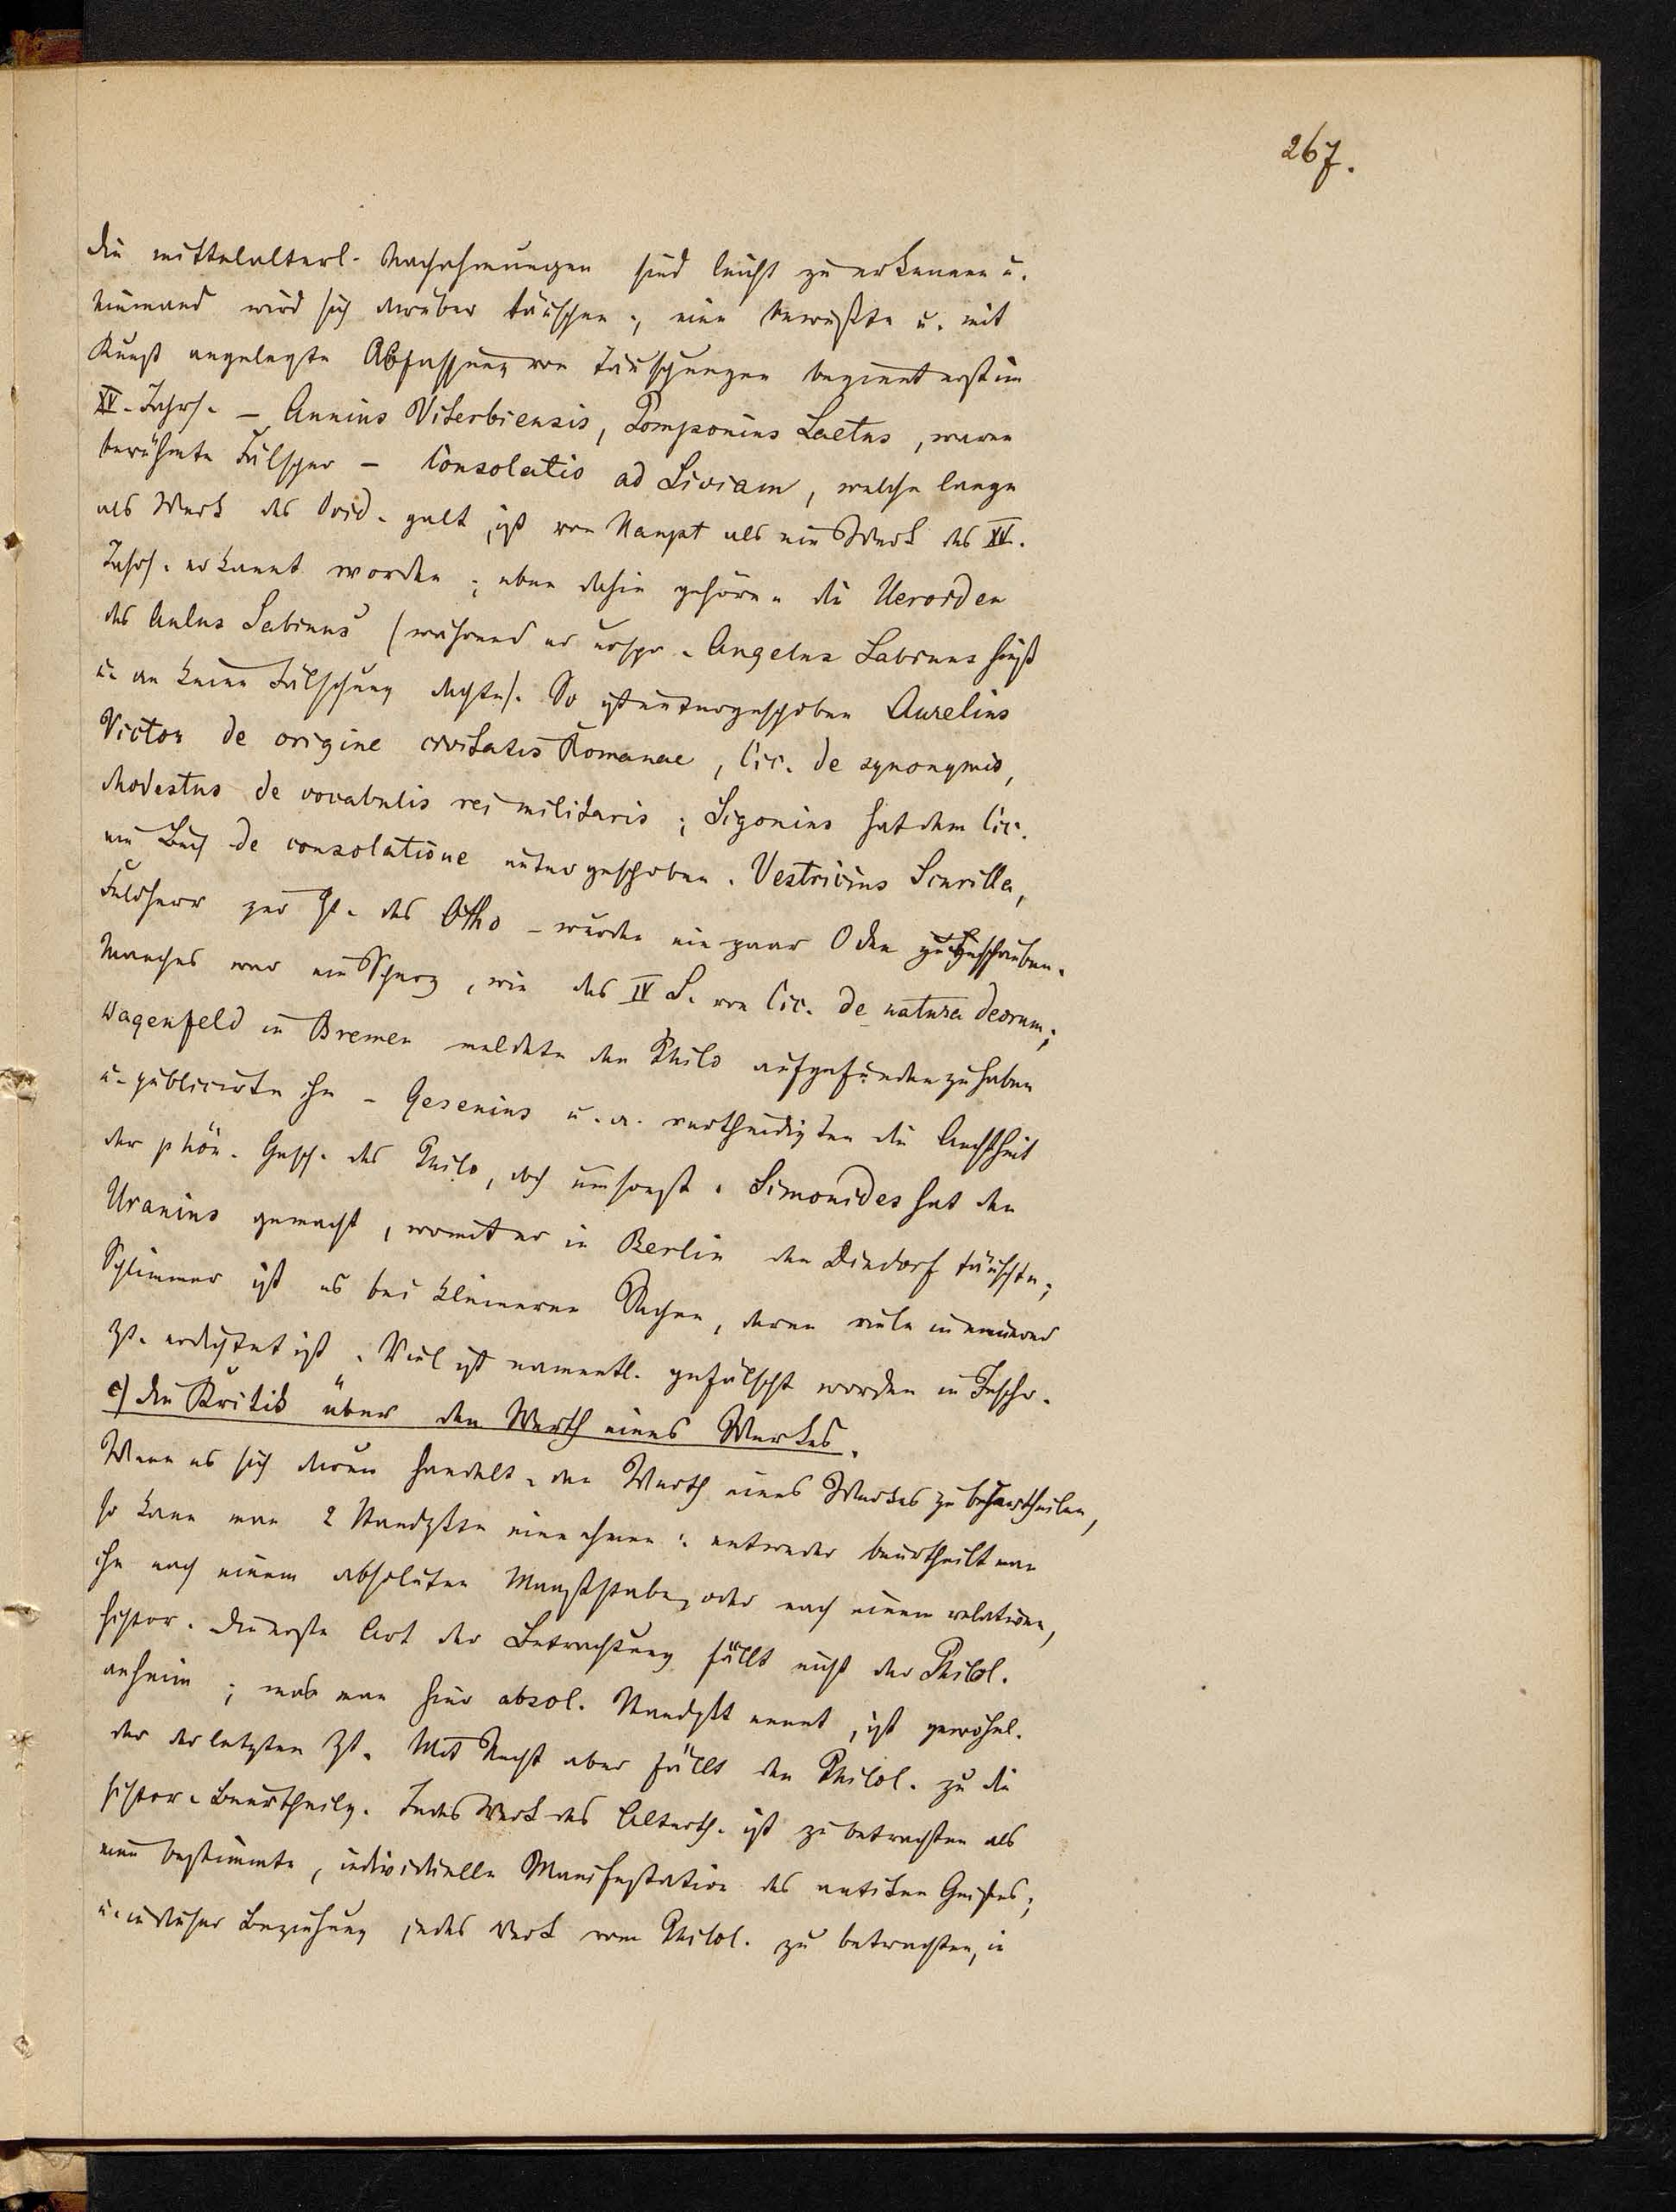 267.
die mittelalterl. Nachahmungen sind leicht zu erkennen u.
niemand wird sich darüber täuschen; eine bewußte u. mit
Kunst angelegte Abfassung von Täuschungen beginnt erst im
XV. Jahrh. – Annius Viterbiensis, Pomponius Laetus, waren
berühmte Fälscher – Consolatio ad Liviam, welche lange
als Werk des Ovid. galt, ist von Haupt als ein Werk des XV.
Jahrh. erkannt worden; eben dahin gehören die Heroiden
des Aulus Sabinus (während er urspr. Angelus Sabinus hieß
u. an keine Fälschung dachte). So ist untergeschoben Aurelius
Victor de origine civitatis Romanae, Cic. de synonymis,
Modestus de vocabulis rei militaris; Sigonius hat dem Cic.
ein Buch de consolatione untergeschoben. Vestricius Scurilla,
Feldherr zur Zt. des Otho – wurden ein paar Oden zugeschrieben.
Manches war ein Scherz, wie das IV L. von Cic. de natura deorum;
Wagenfeld in Bremen meldete den Philo aufgefunden zu haben
u. publicirte ihn – Gesenius u. a. vertheidigten die Aechtheit
der phön. Gesch. des Philo, doch umsonst. Simonides hat den
Uranius gemacht, womit er in Berlin den Dindorf täuschte;
Schlimmer ist es bei kleineren Sachen, deren viele in neuerer
Zt. erdichtet ist. Viel ist namentl. gefälscht worden in Inschr.
c) die Kritik über den Werth eines Werkes.
Wenn es sich darum handelt, den Werth eines Werkes zu beurtheilen,
so kann man 2 Standpkte einnehmen: entweder beurtheilt man
ihn nach einem absoluten Maaßstabe, oder nach einem relativen,
histor. Die erste Art der Betrachtung fällt nicht der Philol.
anheim; was man hier absol. Standpkt nennt, ist gewöhnl.
der der letzten Zt. Mit Recht aber fällt den Philol. zu die
histor. Beurtheilg. Jedes Werk des Alterth. ist zu betrachten als
eine bestimmte, individuelle Manifestation des antiken Geistes;
u. in dieser Beziehung jedes Werk vom Philol. zu betrachten, in